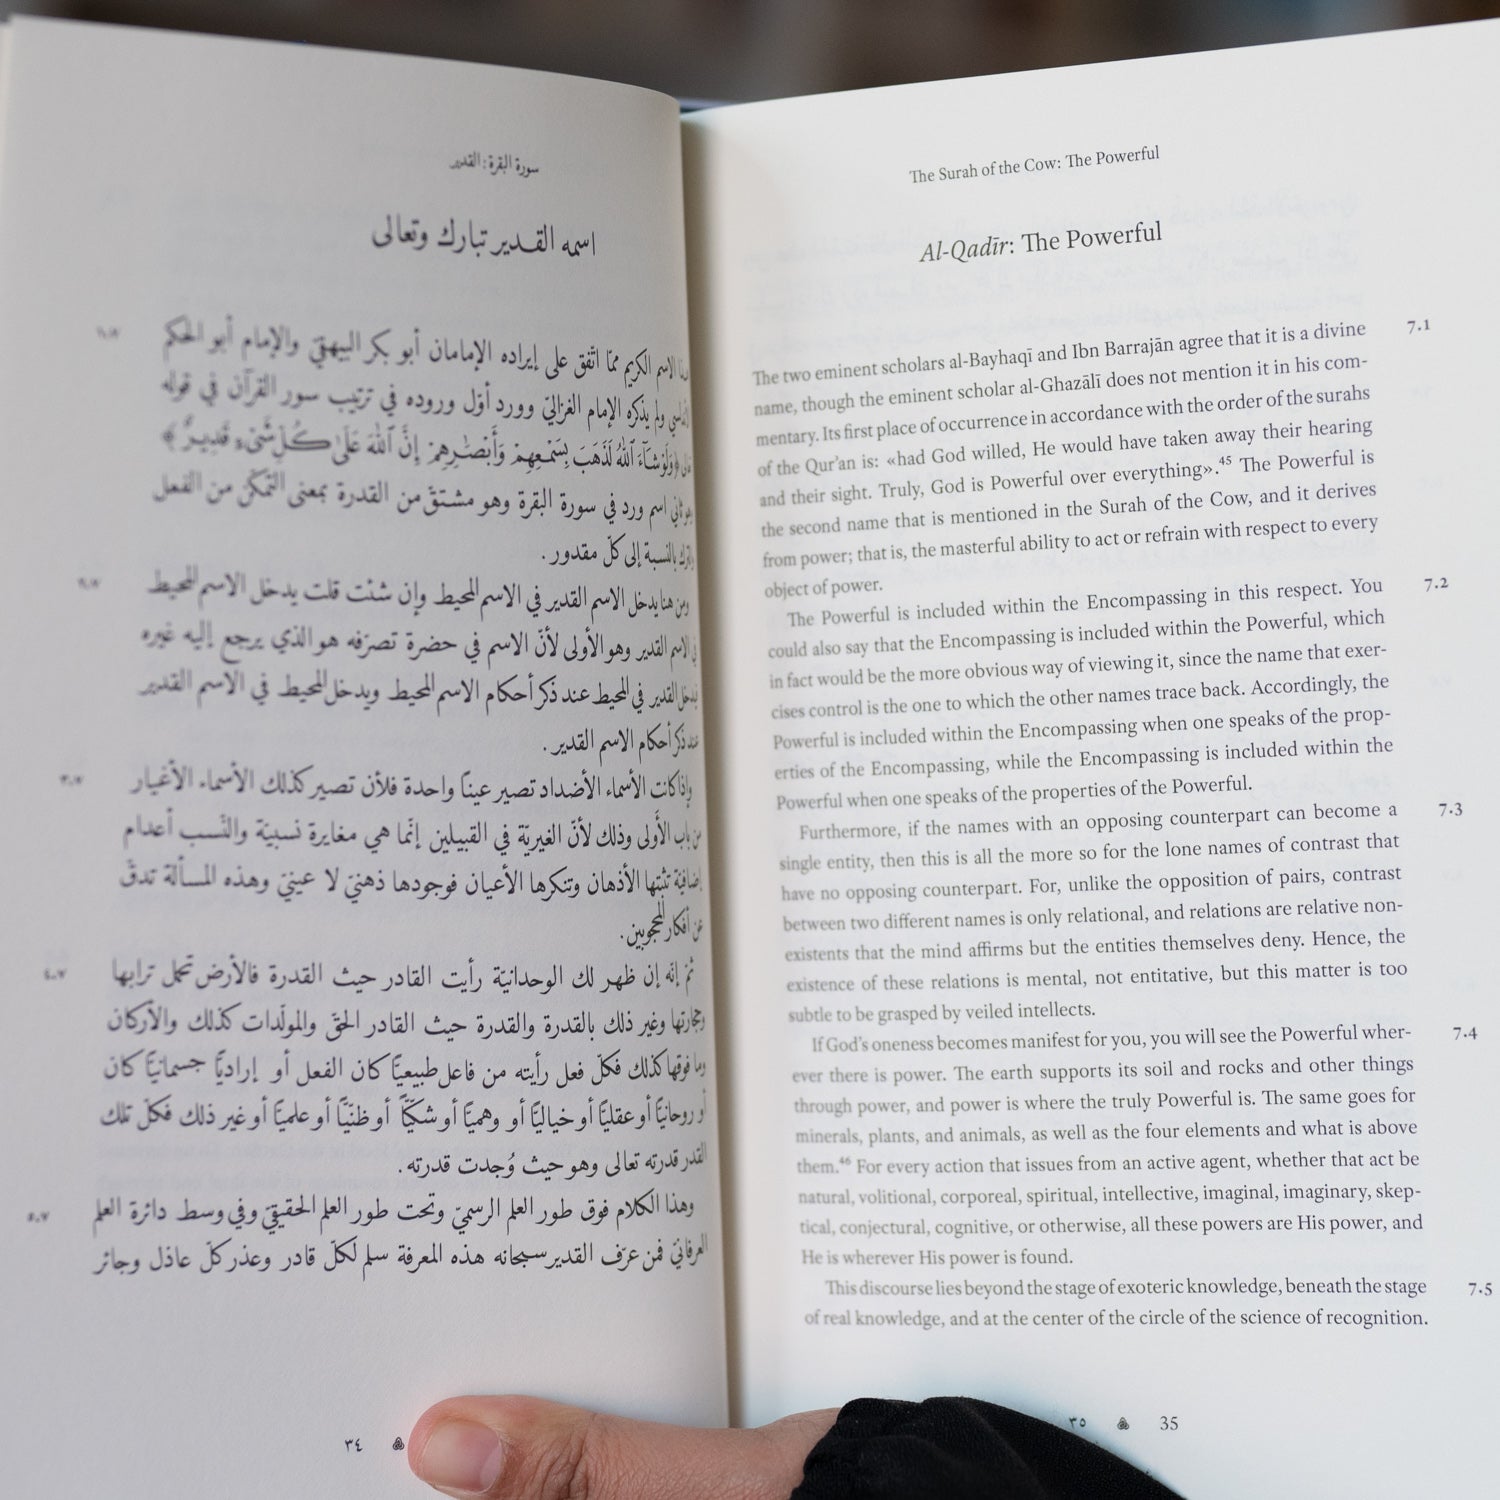 سورة البقرة: القدير
اسمه القدير تبارك وتعالى
٧.١
الاسم الكريم ممّا اتّفق على إيراده الإمامان أبو بكر البيهقيّ والإمام أبو الحكم
ولم يذكره الإمام الغزاليّ وورد أوّل وروده في ترتيب سور القرآن في قوله
﴿وَلَوْ شَآءَ ٱللَّهُ لَذَهَبَ بِسَمْعِهِمْ وَأَبْصَٰرِهِمْ إِنَّ ٱللَّهَ عَلَىٰ كُلِّ شَىْءٍ قَدِيرٌ﴾
وهو ثاني اسم ورد في سورة البقرة وهو مشتقّ من القدرة بمعنى التمكّن من الفعل
بالنسبة إلى كلّ مقدور.
٧.٢
ومن هنا يدخل الاسم القدير في الاسم المحيط وإن شئت قلت يدخل الاسم المحيط
في الاسم القدير وهو الأولى لأنّ الاسم في حضرة تصرّفه هو الذي يرجع إليه غيره
القدير في المحيط عند ذكر أحكام الاسم المحيط ويدخل المحيط في الاسم القدير
عند ذكر أحكام الاسم القدير.
٧.٣
وإذا كانت الأسماء الأضداد تصير عينًا واحدة فلأن تصير كذلك الأسماء الأغيار
من باب الأولى وذلك لأنّ الغيريّة في القبيلين إنّما هي مغايرة نسبيّة والنّسب أعدام
إضافيّة تثبتها الأذهان وتنكرها الأعيان فوجودها ذهنيّ لا عينيّ وهذه المسألة تدقّ
عن أفكار المحجوبين.
٧.٤
ثمّ إنّه إن ظهر لك الوحدانيّة رأيت القادر حيث القدرة فالأرض تحمل ترابها
وحجارتها وغير ذلك بالقدرة والقدرة حيث القادر الحقّ والمولّدات كذلك والأركان
وما فوقها كذلك فكلّ فعل رأيته من فاعل طبيعيًّا كان الفعل أو إراديًّا جسمانيًّا كان
أو روحانيًّا أو عقليًّا أو خياليًّا أو وهميًّا أو شكّيًّا أو ظنّيًّا أو علميًّا أو غير ذلك فكلّ تلك
القدر قدرته تعالى وهو حيث وُجدت قدرته.
٧.٥
وهذا الكلام فوق طور العلم الرسميّ وتحت طور العلم الحقيقيّ وفي وسط دائرة العلم
العرفانيّ فمن عرّف القدير سبحانه هذه المعرفة سلم لكلّ قادر وعذر كلّ عاذل وجائر
٣٤
The Surah of the Cow: The Powerful
Al-Qadīr: The Powerful
The two eminent scholars al-Bayhaqī and Ibn Barrajān agree that it is a divine 7.1
name, though the eminent scholar al-Ghazālī does not mention it in his com-
mentary. Its first place of occurrence in accordance with the order of the surahs
of the Qur'an is: «had God willed, He would have taken away their hearing
and their sight. Truly, God is Powerful over everything».45 The Powerful is
the second name that is mentioned in the Surah of the Cow, and it derives
from power; that is, the masterful ability to act or refrain with respect to every
object of power.
The Powerful is included within the Encompassing in this respect. You 7.2
could also say that the Encompassing is included within the Powerful, which
in fact would be the more obvious way of viewing it, since the name that exer-
cises control is the one to which the other names trace back. Accordingly, the
Powerful is included within the Encompassing when one speaks of the prop-
erties of the Encompassing, while the Encompassing is included within the
Powerful when one speaks of the properties of the Powerful.
Furthermore, if the names with an opposing counterpart can become a 7.3
single entity, then this is all the more so for the lone names of contrast that
have no opposing counterpart. For, unlike the opposition of pairs, contrast
between two different names is only relational, and relations are relative non-
existents that the mind affirms but the entities themselves deny. Hence, the
existence of these relations is mental, not entitative, but this matter is too
subtle to be grasped by veiled intellects.
If God's oneness becomes manifest for you, you will see the Powerful wher- 7.4
ever there is power. The earth supports its soil and rocks and other things
through power, and power is where the truly Powerful is. The same goes for
minerals, plants, and animals, as well as the four elements and what is above
them.46 For every action that issues from an active agent, whether that act be
natural, volitional, corporeal, spiritual, intellective, imaginal, imaginary, skep-
tical, conjectural, cognitive, or otherwise, all these powers are His power, and
He is wherever His power is found.
This discourse lies beyond the stage of exoteric knowledge, beneath the stage 7.5
of real knowledge, and at the center of the circle of the science of recognition.
٣٥ 35